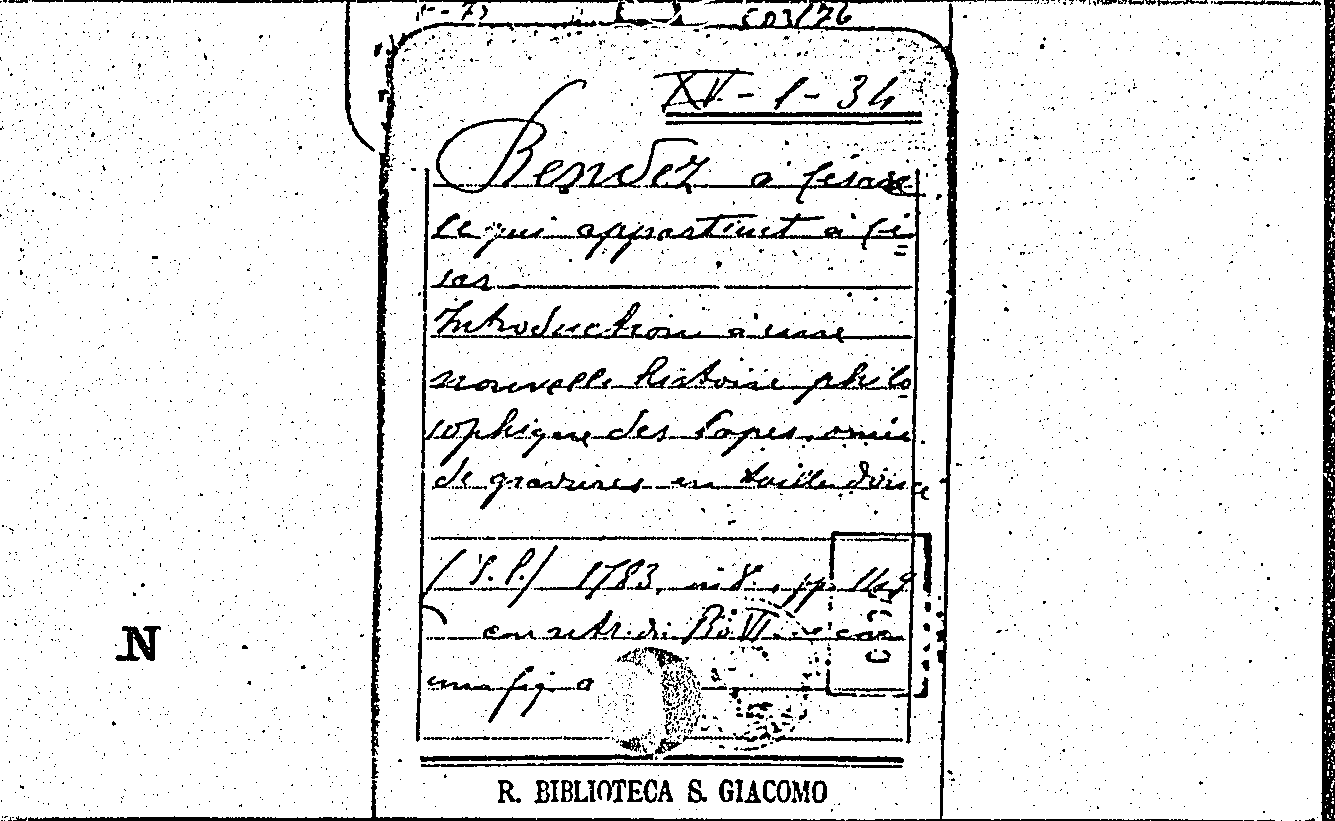 XV-1-34
Rendez à César
ce qui appartient à Cé
sar
Introduction à une
nouvelle histoire philo
sophique des Papes. ornée
de gravures en taille douce
(S.l.) 1783, in 8°, pp. 149
con ritr. di Pio VI e con
una fig a
N
R. BIBLIOTECA S. GIACOMO